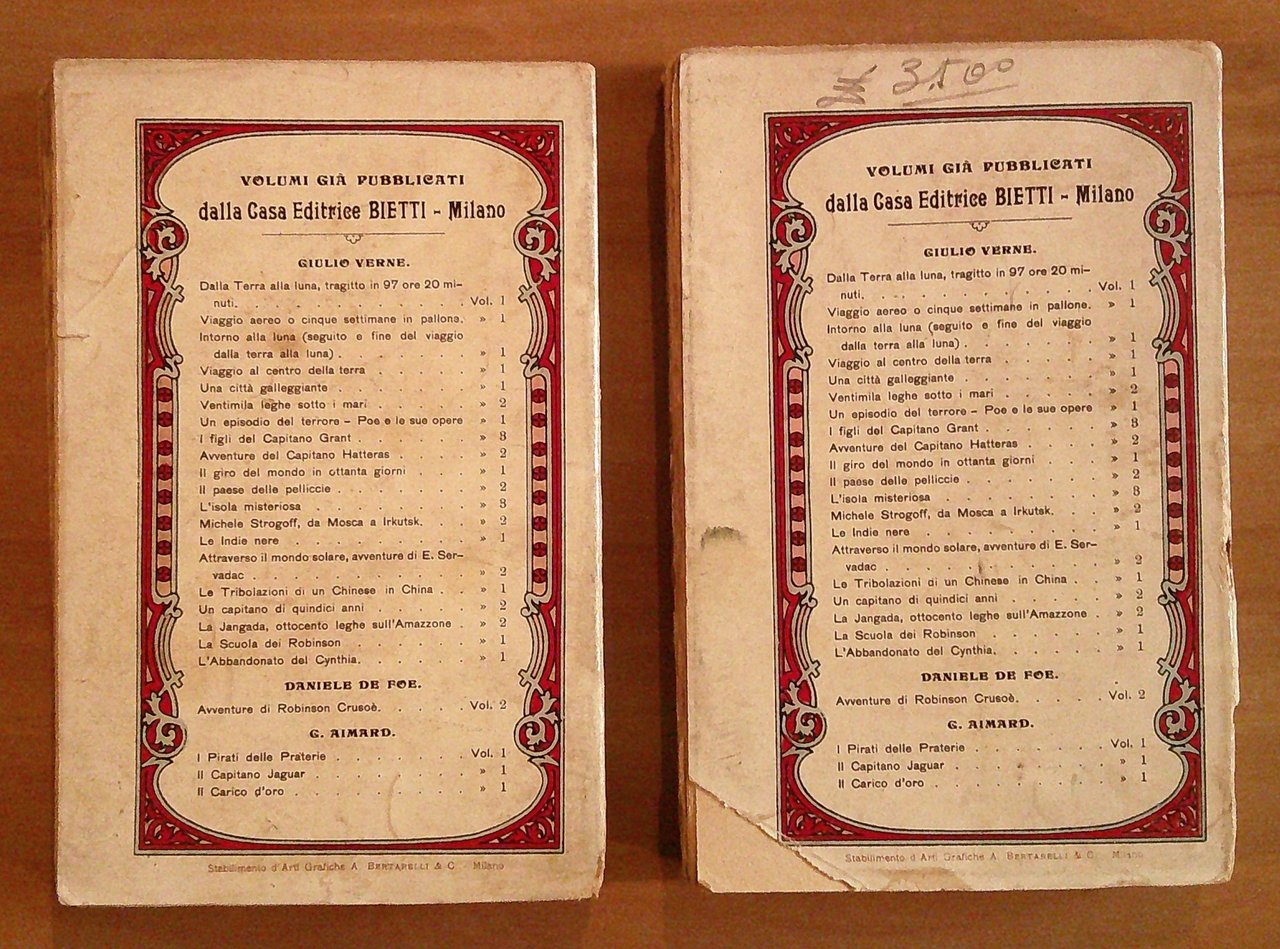 VOLUMI GIÀ PUBBLICATI
dalla Casa Editrice BIETTI - Milano
GIULIO VERNE.
Dalla Terra alla luna, tragitto in 97 ore 20 mi-
nuti. . . . . . . . . . . . . Vol. 1
Viaggio aereo o cinque settimane in pallone. » 1
Intorno alla luna (seguito e fine del viaggio
dalla terra alla luna) . . . . . . » 1
Viaggio al centro della terra . . . . . » 1
Una città galleggiante . . . . . . . » 1
Ventimila leghe sotto i mari . . . . . » 2
Un episodio del terrore - Poe e le sue opere » 1
I figli del Capitano Grant . . . . . . » 3
Avventure del Capitano Hatteras . . . . » 2
Il giro del mondo in ottanta giorni . . . » 1
Il paese delle pelliccie . . . . . . . » 2
L'isola misteriosa . . . . . . . . » 3
Michele Strogoff, da Mosca a Irkutsk. . . » 2
Le Indie nere . . . . . . . . . » 1
Attraverso il mondo solare, avventure di E. Ser-
vadac . . . . . . . . . . . » 2
Le Tribolazioni di un Chinese in China . . » 1
Un capitano di quindici anni . . . . . » 2
La Jangada, ottocento leghe sull'Amazzone . » 2
La Scuola dei Robinson . . . . . . » 1
L'Abbandonato del Cynthia. . . . . . » 1
DANIELE DE FOE.
Avventure di Robinson Crusoè. . . . . Vol. 2
G. AIMARD.
I Pirati delle Praterie . . . . . . . Vol. 1
Il Capitano Jaguar . . . . . . . . » 1
Il Carico d'oro . . . . . . . . . » 1
Stabilimento d'Arti Grafiche A. BERTARELLI & C. - Milano
3.500
VOLUMI GIÀ PUBBLICATI
dalla Casa Editrice BIETTI - Milano
GIULIO VERNE.
Dalla Terra alla luna, tragitto in 97 ore 20 mi-
nuti. . . . . . . . . . . . . Vol. 1
Viaggio aereo o cinque settimane in pallone. » 1
Intorno alla luna (seguito e fine del viaggio
dalla terra alla luna) . . . . . . » 1
Viaggio al centro della terra . . . . . » 1
Una città galleggiante . . . . . . . » 1
Ventimila leghe sotto i mari . . . . . » 2
Un episodio del terrore - Poe e le sue opere » 1
I figli del Capitano Grant . . . . . . » 3
Avventure del Capitano Hatteras . . . . » 2
Il giro del mondo in ottanta giorni . . . » 1
Il paese delle pelliccie . . . . . . . » 2
L'isola misteriosa . . . . . . . . » 3
Michele Strogoff, da Mosca a Irkutsk. . . » 2
Le Indie nere . . . . . . . . . » 1
Attraverso il mondo solare, avventure di E. Ser-
vadac . . . . . . . . . . . » 2
Le Tribolazioni di un Chinese in China . . » 1
Un capitano di quindici anni . . . . . » 2
La Jangada, ottocento leghe sull'Amazzone . » 2
La Scuola dei Robinson . . . . . . » 1
L'Abbandonato del Cynthia. . . . . . » 1
DANIELE DE FOE.
Avventure di Robinson Crusoè. . . . . Vol. 2
G. AIMARD.
I Pirati delle Praterie . . . . . . . Vol. 1
Il Capitano Jaguar . . . . . . . . » 1
Il Carico d'oro . . . . . . . . . » 1
Stabilimento d'Arti Grafiche A. BERTARELLI & C. Milano